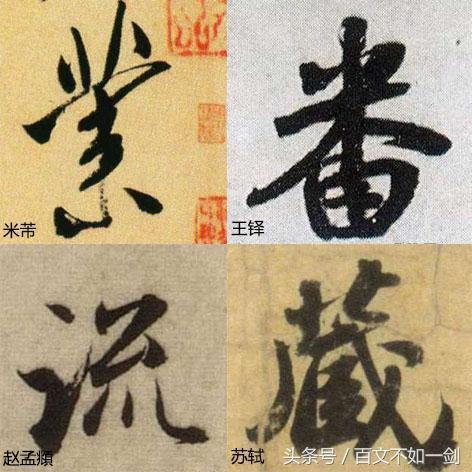 業
番
米芾
王铎
流
藏
赵孟頫
苏轼
头条号 / 百文不如一剑